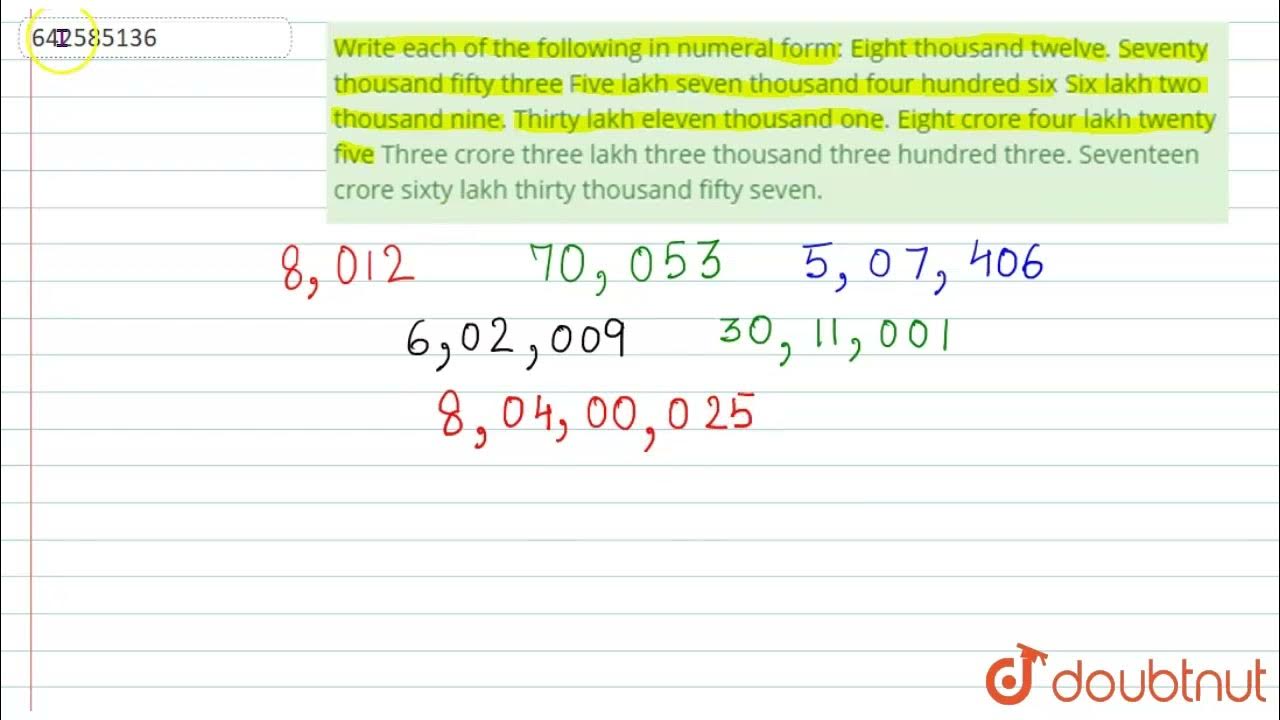 642585136
Write each of the following in numeral form: Eight thousand twelve. Seventy
thousand fifty three Five lakh seven thousand four hundred six Six lakh two
thousand nine. Thirty lakh eleven thousand one. Eight crore four lakh twenty
five Three crore three lakh three thousand three hundred three. Seventeen
crore sixty lakh thirty thousand fifty seven.
8,012 70,053 5,07,406
6,02,009 30,11,001
8,04,00,025
doubtnut